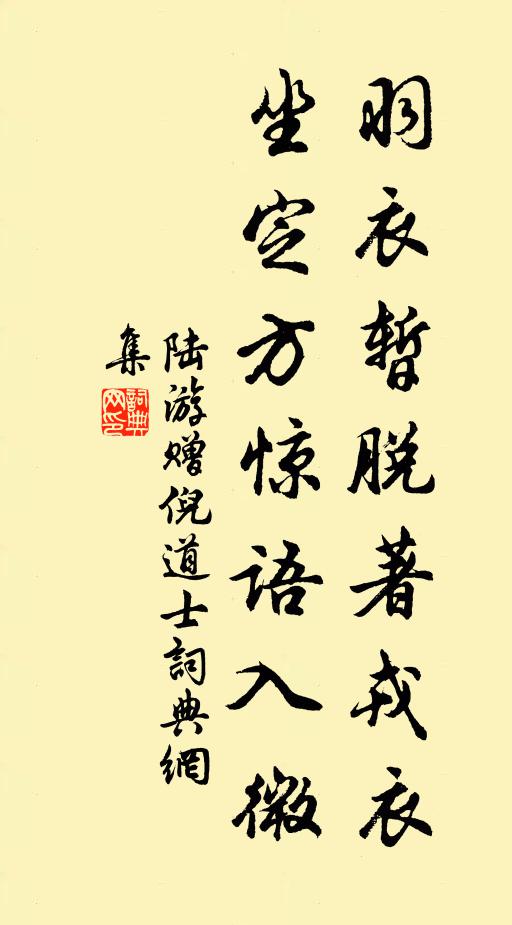 羽衣暂脱著戎衣
坐定方惊语入微
陆游赠倪道士词典網
集
詞典
网印